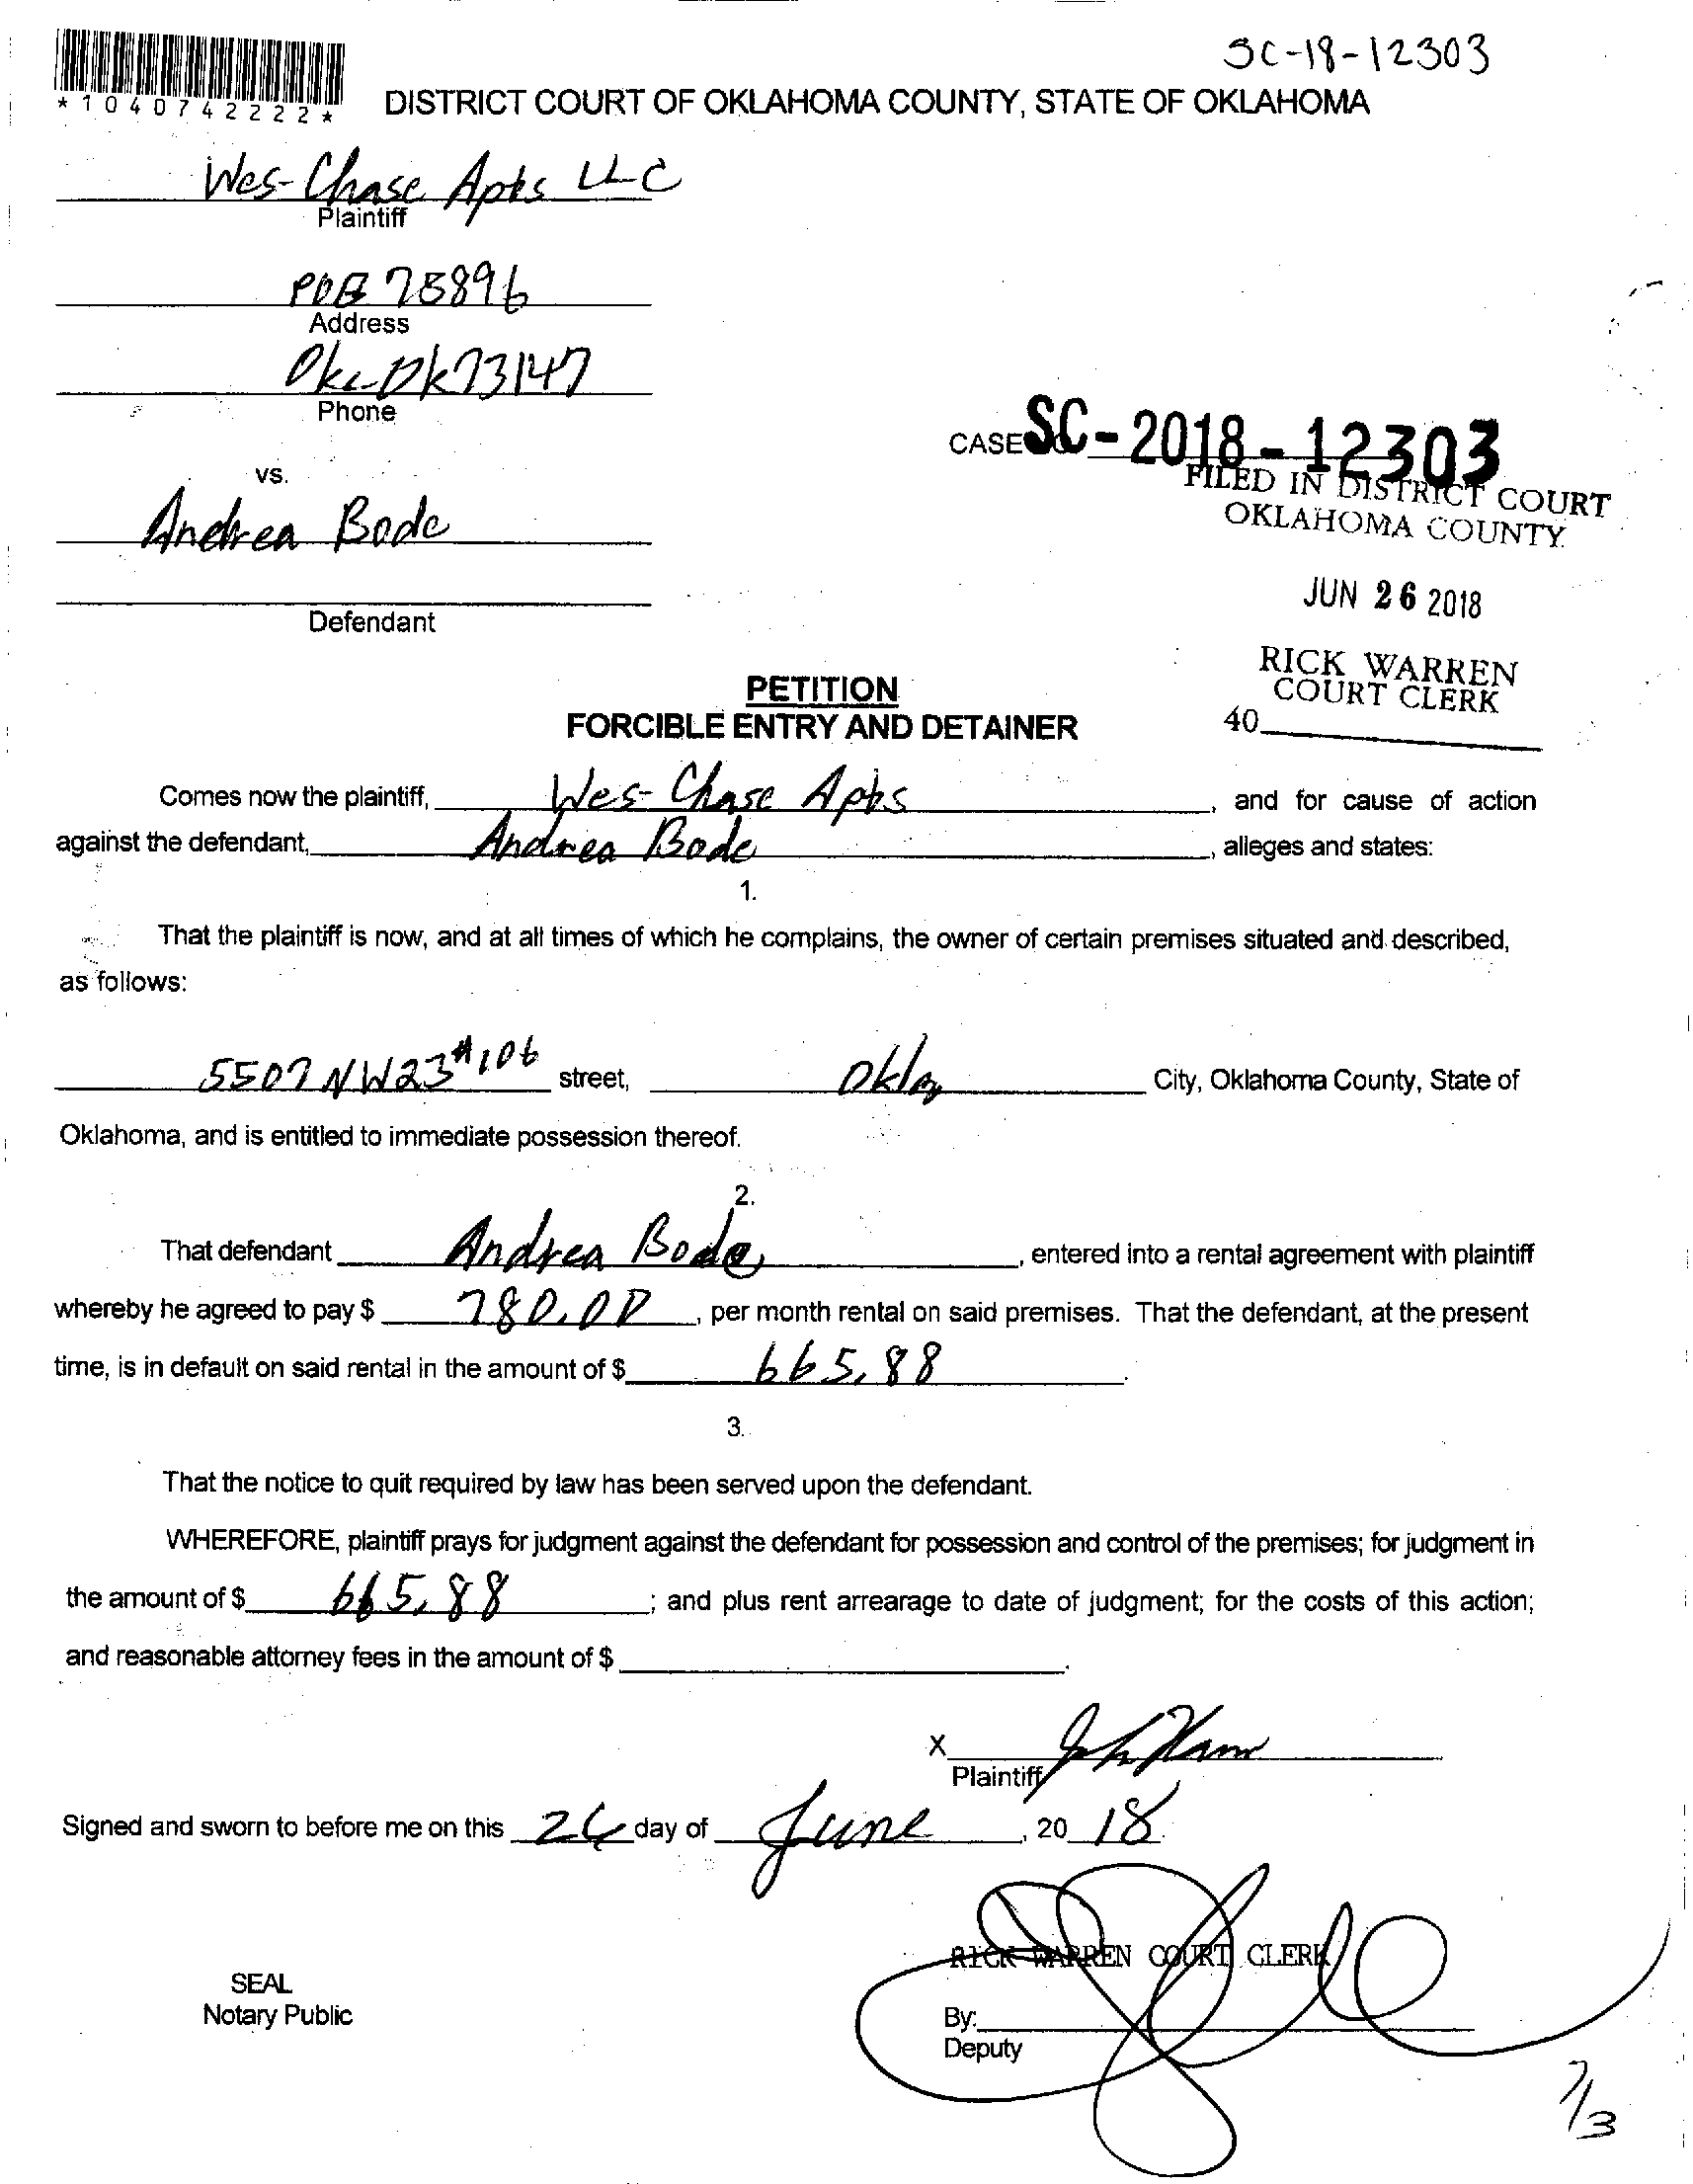 SC-18-12303
*1040742222*
DISTRICT COURT OF OKLAHOMA COUNTY, STATE OF OKLAHOMA
Wes-Chase Apts LLC
Plaintiff
POB 75896
Address
Okc Ok 73147
Phone
CASE SC-2018-12303
FILED IN DISTRICT COURT
OKLAHOMA COUNTY
vs.
Andrea Bode
JUN 26 2018
Defendant
RICK WARREN
COURT CLERK
40
PETITION
FORCIBLE ENTRY AND DETAINER
Comes now the plaintiff, Wes-Chase Apts, and for cause of action
against the defendant, Andrea Bode, alleges and states:
1.
That the plaintiff is now, and at all times of which he complains, the owner of certain premises situated and described,
as follows:
5507 NW23 #106 street, Okla City, Oklahoma County, State of
Oklahoma, and is entitled to immediate possession thereof.
2.
That defendant Andrea Bode, entered into a rental agreement with plaintiff
whereby he agreed to pay $ 780.00, per month rental on said premises. That the defendant, at the present
time, is in default on said rental in the amount of $ 665.88.
3.
That the notice to quit required by law has been served upon the defendant.
WHEREFORE, plaintiff prays for judgment against the defendant for possession and control of the premises; for judgment in
the amount of $ 665.88; and plus rent arrearage to date of judgment; for the costs of this action;
and reasonable attorney fees in the amount of $.
X
Plaintiff
Signed and sworn to before me on this 26 day of June, 20 18.
RICK WARREN COURT CLERK
SEAL
Notary Public
By:
Deputy
7/3